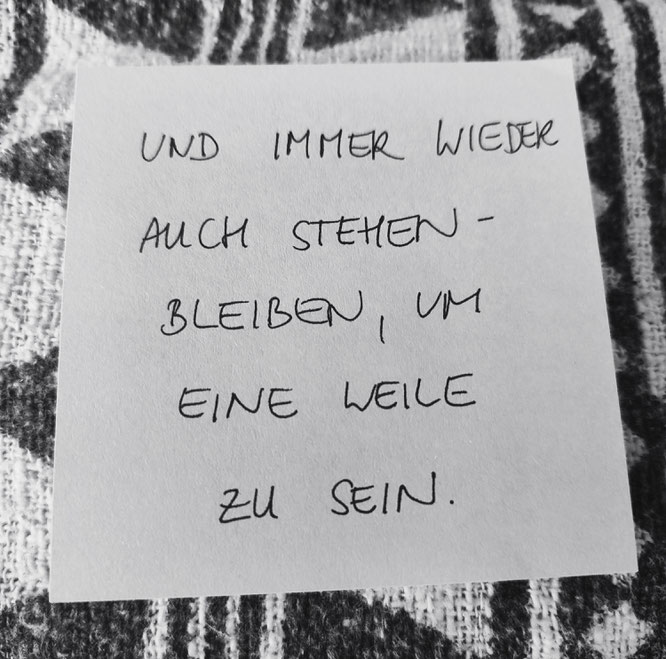 UND IMMER WIEDER
AUCH STEHEN-
BLEIBEN, UM
EINE WEILE
ZU SEIN.